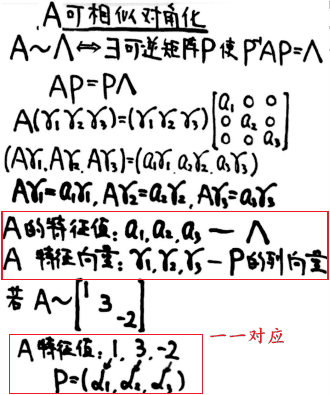 A可相似对角化
A~Λ⇔∃可逆矩阵P使P⁻¹AP=Λ
AP=PΛ
A(γ₁γ₂γ₃)=(γ₁γ₂γ₃)[a₁ 0 0
0 a₂ 0
0 0 a₃]
(Aγ₁,Aγ₂,Aγ₃)=(a₁γ₁,a₂γ₂,a₃γ₃)
Aγ₁=a₁γ₁,Aγ₂=a₂γ₂,Aγ₃=a₃γ₃
A的特征值:a₁,a₂,a₃—Λ
A 特征向量:γ₁,γ₂,γ₃—P的列向量
若 A~[1 3 -2]
A特征值:1,3,-2
一一对应
P=(α₁,α₂,α₃)